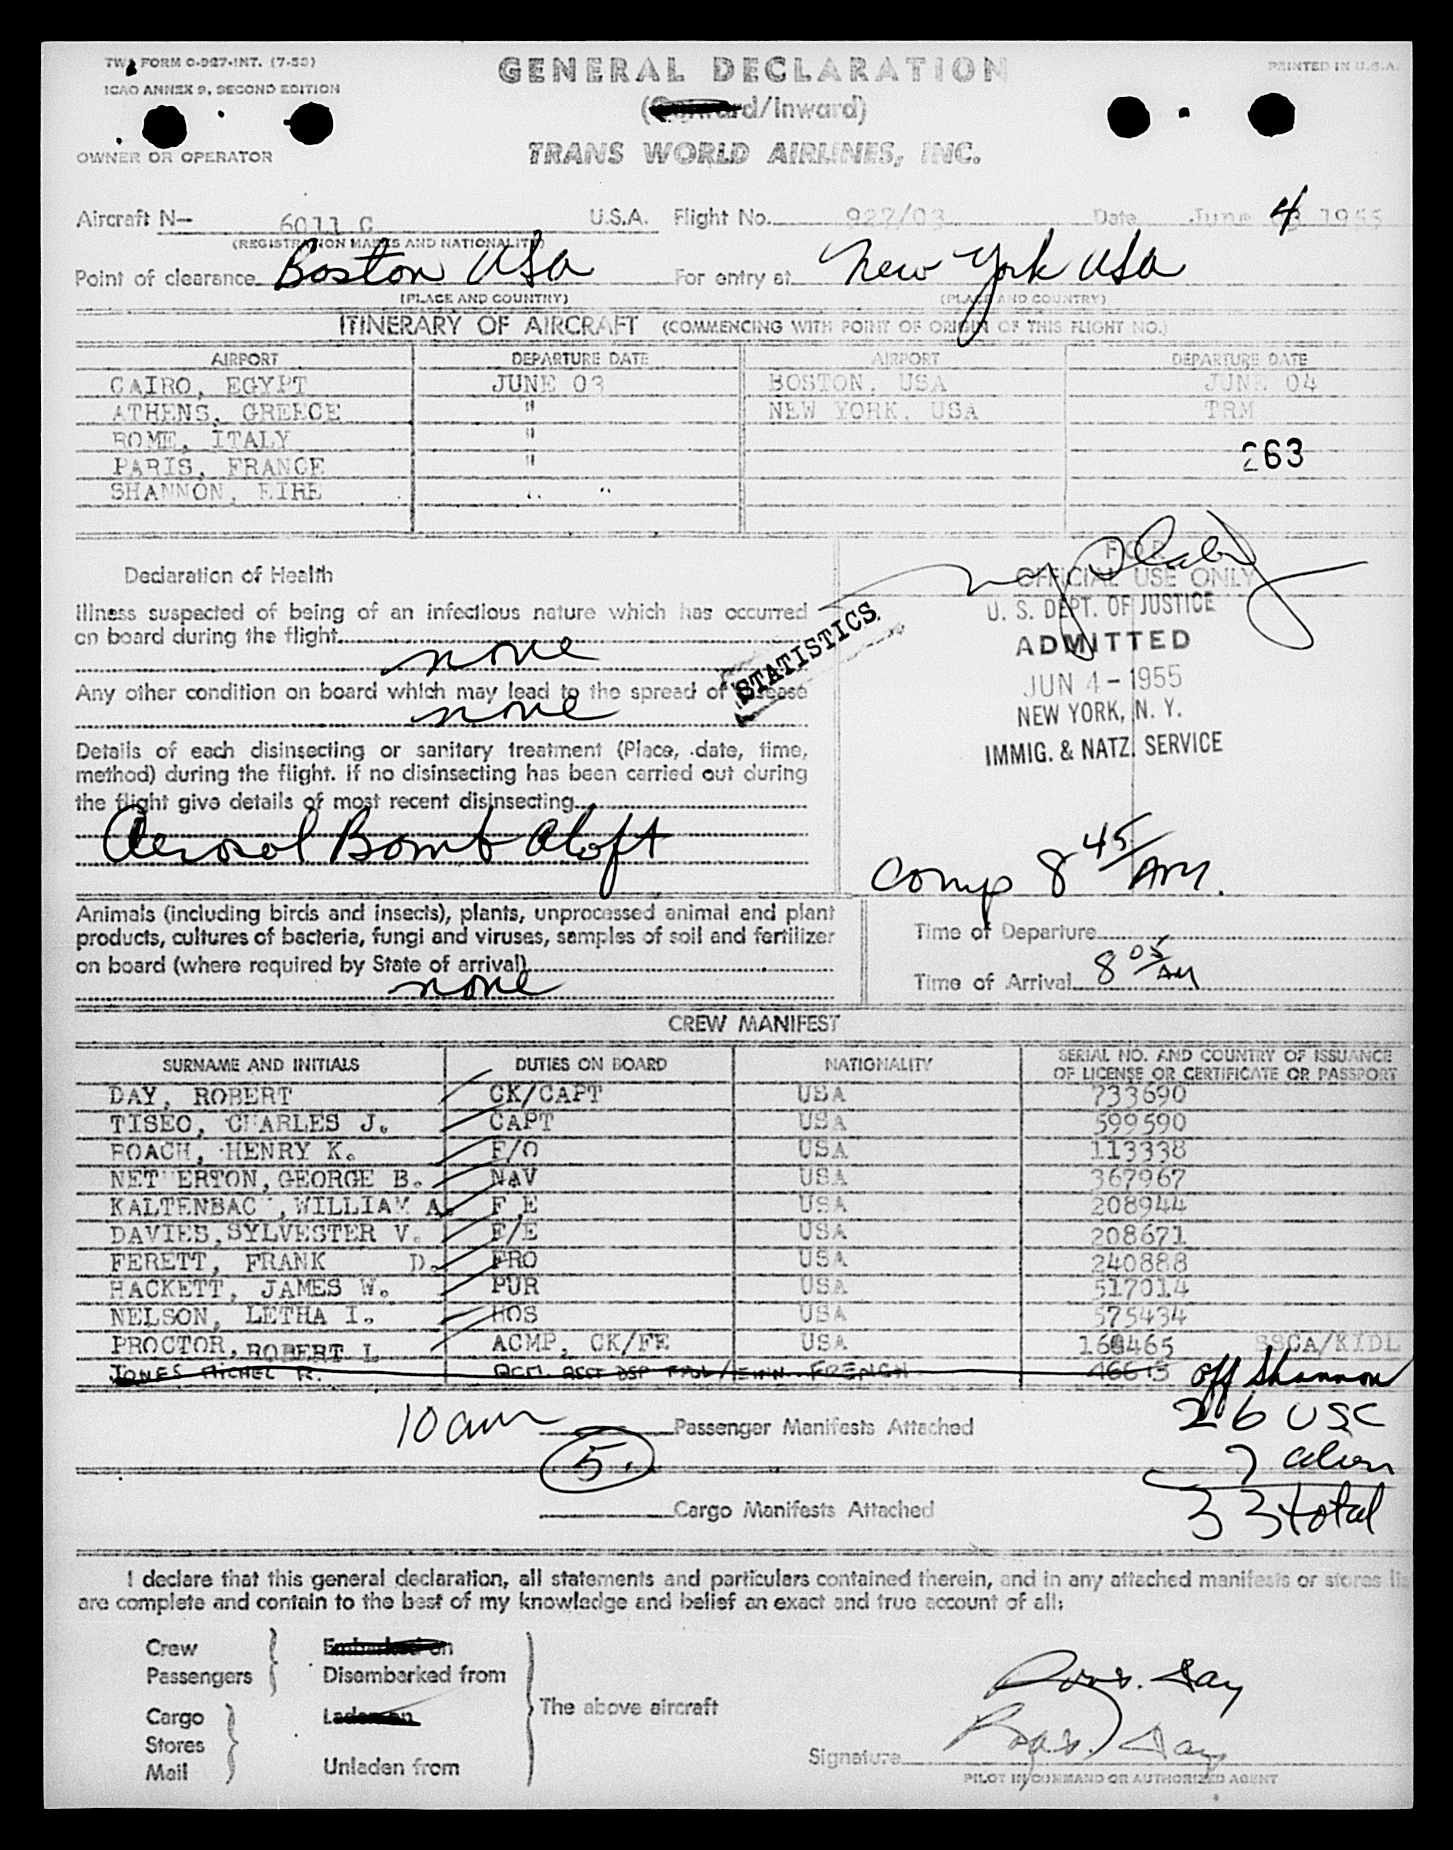 TWA FORM O-927-INT. (7-53)
ICAO ANNEX 9, SECOND EDITION
PRINTED IN U.S.A.
GENERAL DECLARATION
(Outward/Inward)
OWNER OR OPERATOR
TRANS WORLD AIRLINES, INC.
Aircraft N— 6011 C U.S.A. Flight No. 927/03 Date June 4 1955
(REGISTRATION MARKS AND NATIONALITY)
Point of clearance Boston USA For entry at New York USA
(PLACE AND COUNTRY) (PLACE AND COUNTRY)
ITINERARY OF AIRCRAFT (COMMENCING WITH POINT OF ORIGIN OF THIS FLIGHT NO.)
AIRPORT DEPARTURE DATE AIRPORT DEPARTURE DATE
CAIRO, EGYPT JUNE 03 BOSTON, USA JUNE 04
ATHENS, GREECE " NEW YORK, USA TRM
ROME, ITALY "
PARIS, FRANCE " 263
SHANNON, EIRE " "
FOR
OFFICIAL USE ONLY
Declaration of Health
Illness suspected of being of an infectious nature which has occurred
on board during the flight
none
Any other condition on board which may lead to the spread of disease
none
STATISTICS
U. S. DEPT. OF JUSTICE
ADMITTED
JUN 4 - 1955
NEW YORK, N. Y.
IMMIG. & NATZ. SERVICE
Details of each disinsecting or sanitary treatment (Place, date, time,
method) during the flight. If no disinsecting has been carried out during
the flight give details of most recent disinsecting
Aerosol Bomb Aloft
Comp 8 45 AM.
Animals (including birds and insects), plants, unprocessed animal and plant
products, cultures of bacteria, fungi and viruses, samples of soil and fertilizer
on board (where required by State of arrival)
none
Time of Departure
Time of Arrival 8 05 AM
CREW MANIFEST
SURNAME AND INITIALS DUTIES ON BOARD NATIONALITY SERIAL NO. AND COUNTRY OF ISSUANCE OF LICENSE OR CERTIFICATE OR PASSPORT
DAY, ROBERT CK/CAPT USA 733690
TISEO, CHARLES J. CAPT USA 599590
ROACH, HENRY K. F/O USA 113338
NETHERTON, GEORGE B. NAV USA 367967
KALTENBACH, WILLIAM A. F/E USA 208944
DAVIES, SYLVESTER V. F/E USA 208671
FERETT, FRANK D. FRO USA 240888
HACKETT, JAMES W. PUR USA 517014
NELSON, LETHA I. HOS USA 575434
PROCTOR, ROBERT L ACMP, CK/FE USA 168465 SSCA/KIDL
JONES MICHEL R. FRENCH off Shannon
10 am Passenger Manifests Attached
5.
26 USC
7 alien
33 total
Cargo Manifests Attached
I declare that this general declaration, all statements and particulars contained therein, and in any attached manifests or stores
are complete and contain to the best of my knowledge and belief an exact and true account of all:
Crew Embarked on
Passengers Disembarked from
The above aircraft
Cargo Laden on
Stores
Mail Unladen from
Signature
PILOT IN COMMAND OR AUTHORIZED AGENT